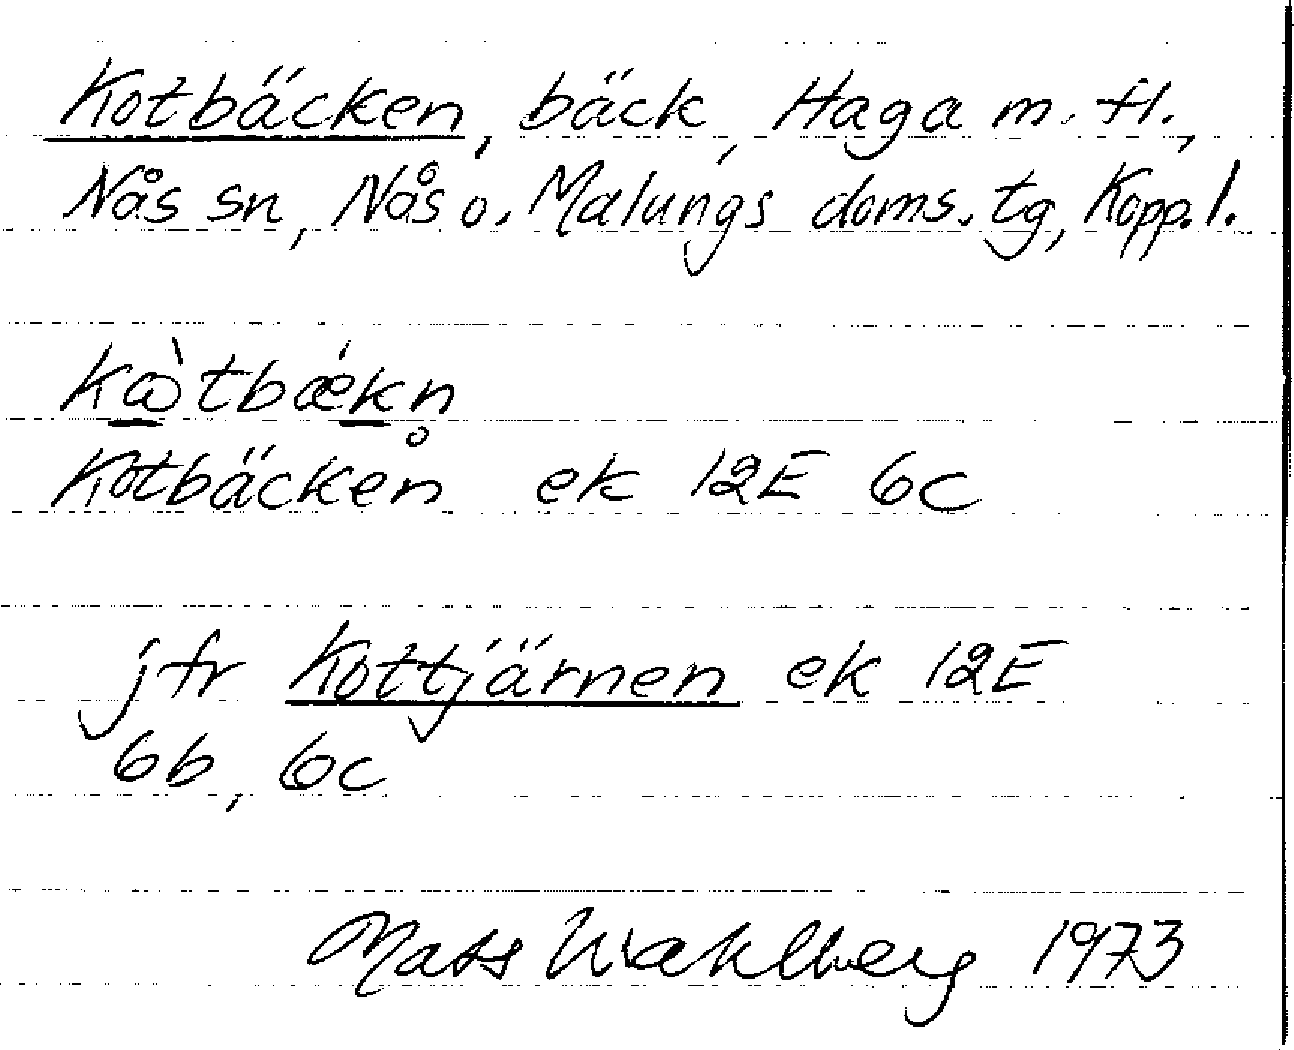 Kotbäcken, bäck, Haga m. fl.,
Nås sn, Nås o. Malungs doms. tg, Kopp. l.
kæ̀tbǽkn̥
Kotbäcken ek 12E 6c
jfr Kottjärnen ek 12E
6b, 6c
Mats Wahlberg 1973